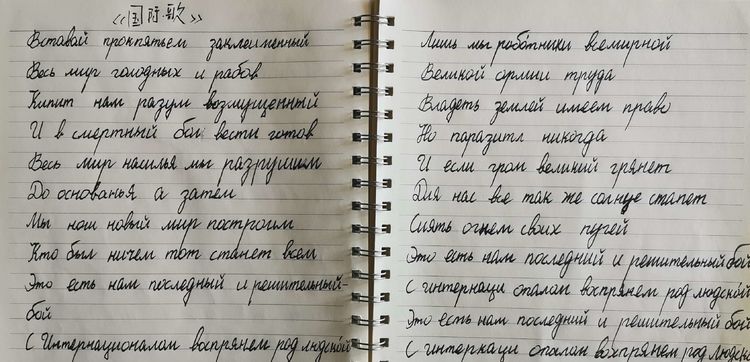 《国际歌》
Вставай проклятьем заклеименный
Весь мир голодных и рабов
Кипит нам разум возмущенный
И в смертный бой вести готов
Весь мир насилья мы разрушим
До основанья а затем
Мы наш новый мир построим
Кто был ничем тот станет всем
Это есть нам последный и решительный-
бой
С Интернационалом воспрянем род людской
Лишь мы работники всемирной
Великой армии труда
Владеть землей имеем право
Но паразиты никогда
И если гром великий грянет
Для нас все так же солнце станет
Сиять огнем своих лучей
Это есть нам последний и решительный бой
С интернаци оналом воспрянем род людской
Это есть нам последний и решительный бой
С интернаци оналом воспрянем род людской